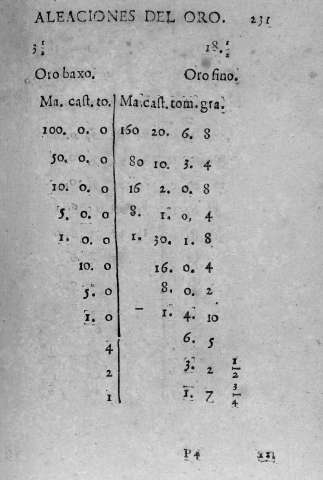 ALEACIONES DEL ORO. 231
3 1/2 18. 1/2
Oro baxo. Oro fino.
Ma. cast. to. Ma. cast. tom. gra.
100. 0. 0 160 20. 6. 8
50. 0. 0 80 10. 3. 4
10. 0. 0 16 2. 0. 8
5. 0. 0 8. 1. 0, 4
1. 0. 0 1. 30. 1. 8
10. 0 16. 0. 4
5. 0 8. 0. 2
1. 0 – 1. 4. 10
4 6. 5
2 3. 2 1/2
1 1. 7 3/4
P4